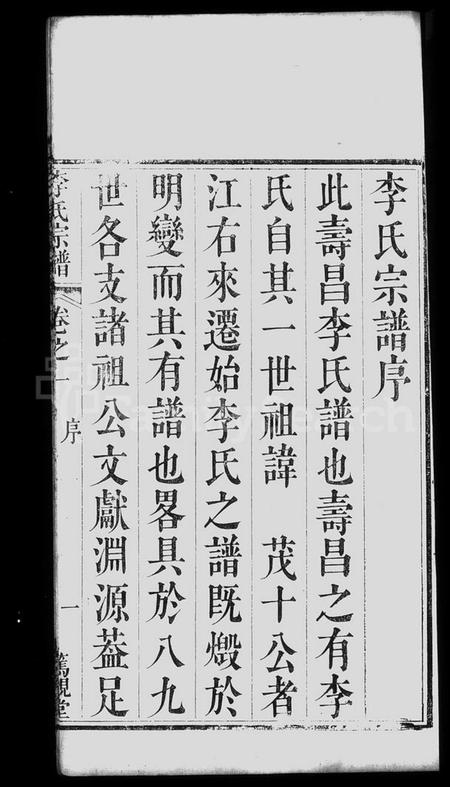 李氏宗譜序
此壽昌李氏譜也壽昌之有李
氏自其一世祖諱 茂十公者
江右來遷始李氏之譜旣燬於
明變而其有譜也畧具於八九
世各支諸祖公文獻淵源葢足
李氏宗譜 卷之一 序 一 篤親堂